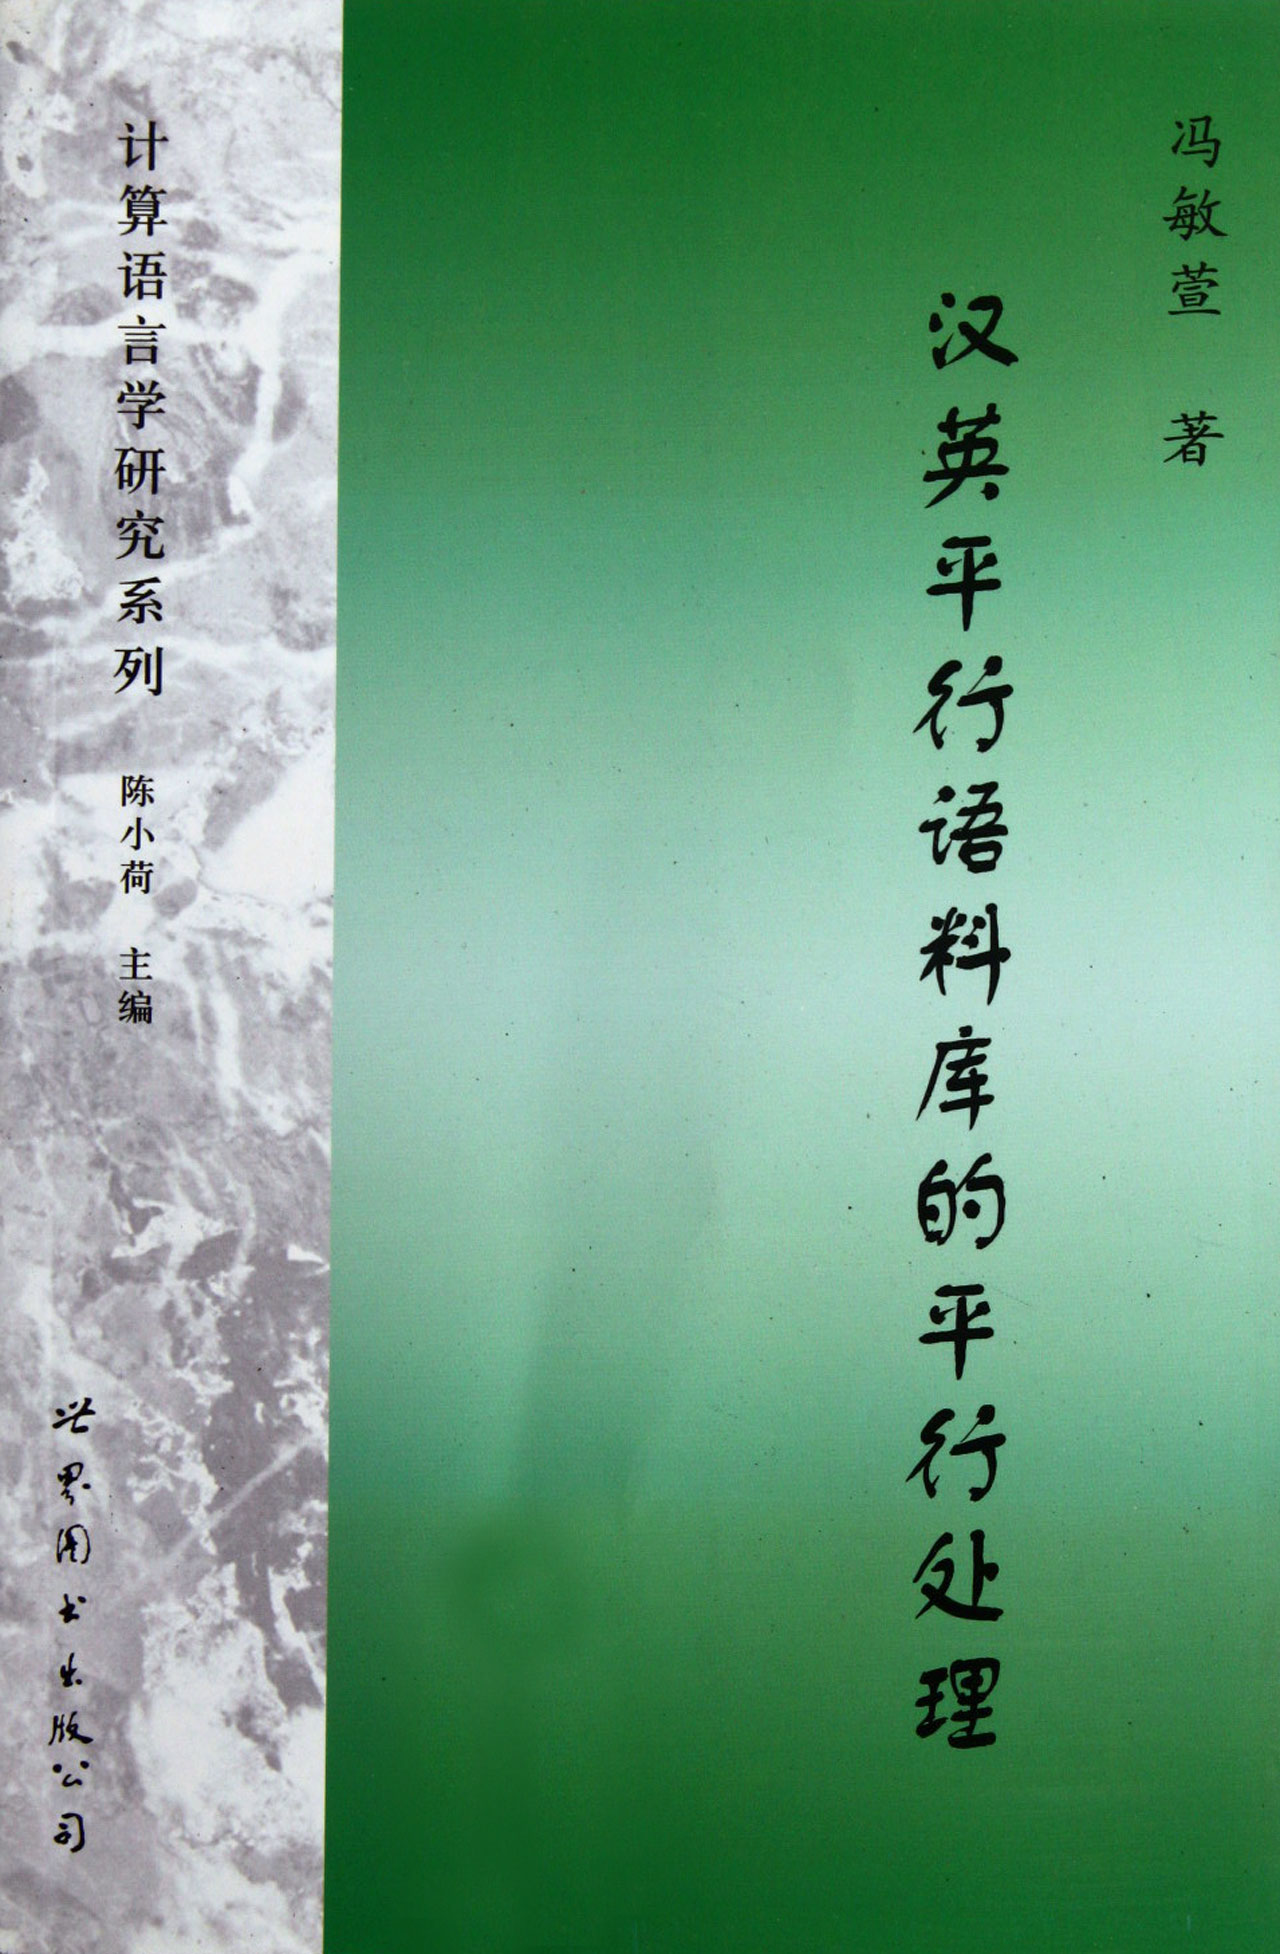 冯敏萱 著
汉英平行语料库的平行处理
计算语言学研究系列 陈小荷 主编
世界图书出版公司